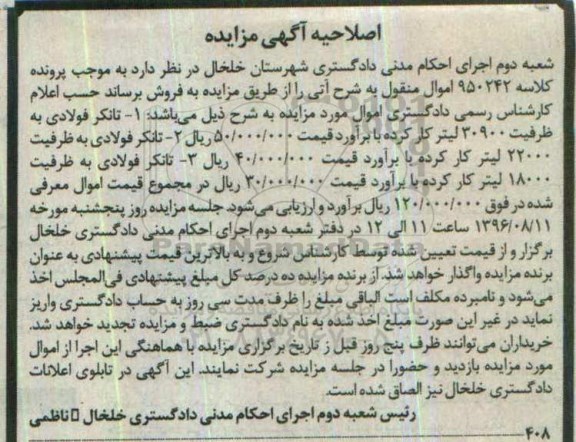 اصلاحیه آگهی مزایده
شعبه دوم اجرای احکام مدنی دادگستری شهرستان خلخال در نظر دارد به موجب پرونده
کلاسه ۹۵۰۲۴۲ اموال منقول به شرح آتی را از طریق مزایده به فروش برساند حسب اعلام
کارشناس رسمی دادگستری اموال مورد مزایده به شرح ذیل می‌باشند: ۱- تانکر فولادی به
ظرفیت ۳۰۹۰۰ لیتر کار کرده با برآورد قیمت ۵۰/۰۰۰/۰۰۰ ریال ۲- تانکر فولادی به ظرفیت
۲۲۰۰۰ لیتر کار کرده با برآورد قیمت ۴۰/۰۰۰/۰۰۰ ریال ۳- تانکر فولادی به ظرفیت
۱۸۰۰۰ لیتر کار کرده با برآورد قیمت ۳۰/۰۰۰/۰۰۰ ریال در مجموع قیمت اموال معرفی
شده در فوق ۱۲۰/۰۰۰/۰۰۰ ریال برآورد و ارزیابی می‌شود. جلسه مزایده روز پنجشنبه مورخه
۱۳۹۶/۰۸/۱۱ ساعت ۱۱ الی ۱۲ در دفتر شعبه دوم اجرای احکام مدنی دادگستری خلخال
برگزار و از قیمت تعیین شده توسط کارشناس شروع و به بالاترین قیمت پیشنهادی به عنوان
برنده مزایده واگذار خواهد شد. از برنده مزایده ده درصد کل مبلغ پیشنهادی فی‌المجلس اخذ
می‌شود و نامبرده مکلف است الباقی مبلغ را ظرف مدت سی روز به حساب دادگستری واریز
نماید در غیر این صورت مبلغ اخذ شده به نام دادگستری ضبط و مزایده تجدید خواهد شد.
خریداران می‌توانند ظرف پنج روز قبل ز تاریخ برگزاری مزایده با هماهنگی این اجرا از اموال
مورد مزایده بازدید و حضورا در جلسه مزایده شرکت نمایند. این آگهی در تابلوی اعلانات
دادگستری خلخال نیز الصاق شده است.
رئیس شعبه دوم اجرای احکام مدنی دادگستری خلخال ▯ ناظمی
۴۰۸
ParsNamadData